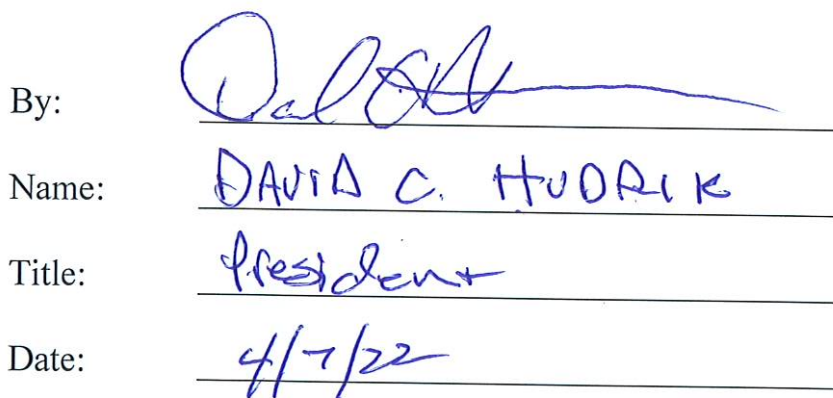 By:
Name: DAVID C. HUDRIK
Title: President
Date: 4/7/22